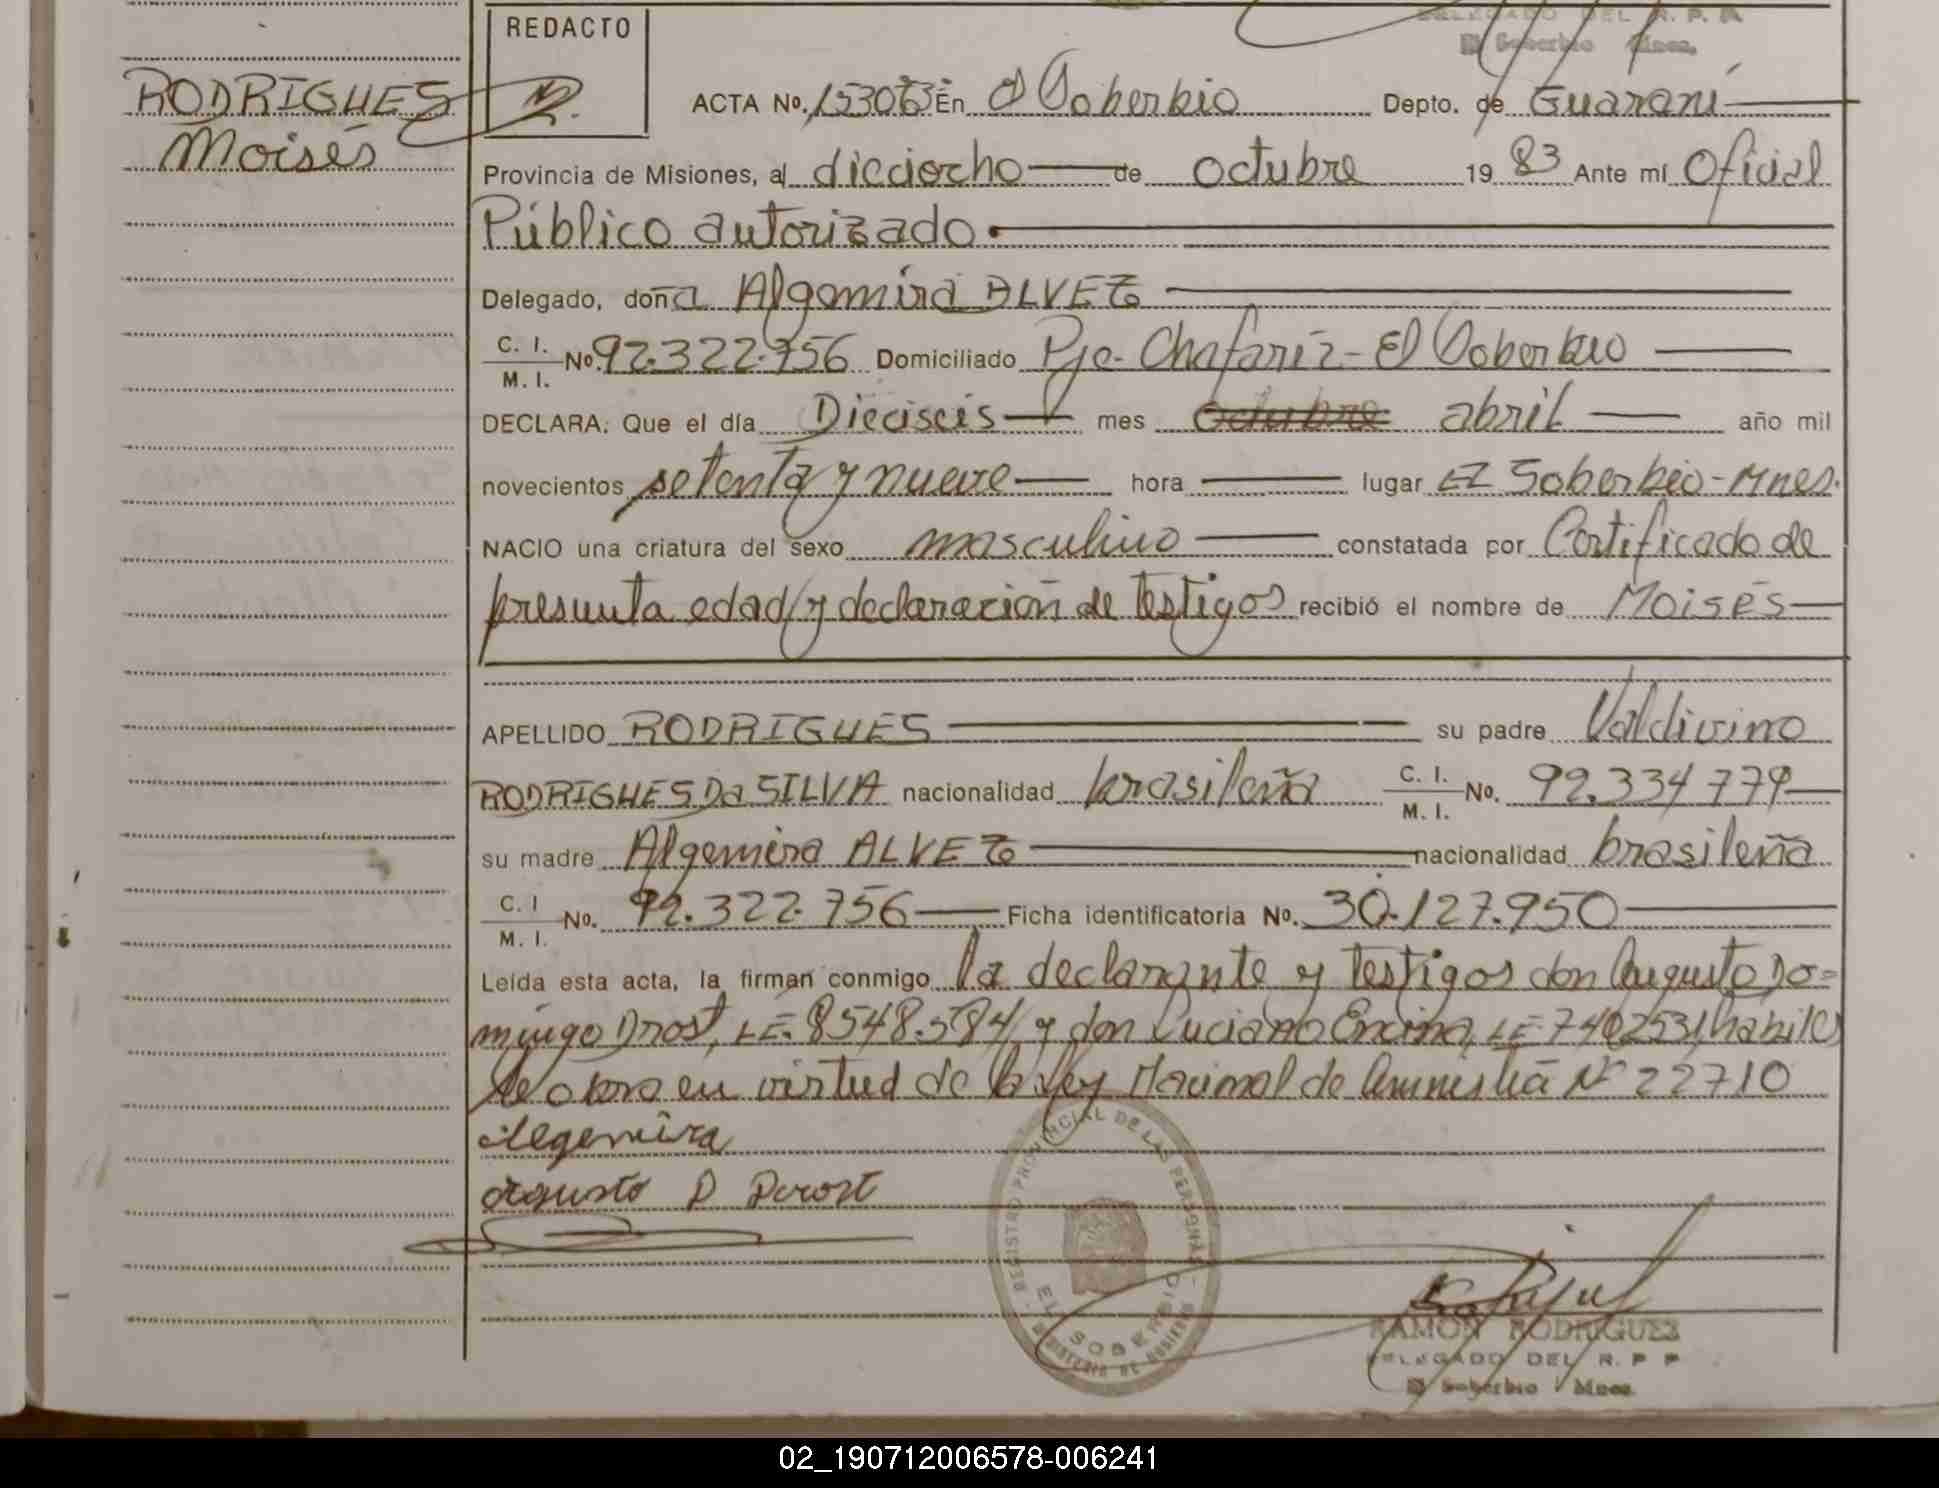 DELEGADO DEL R. P. P.
El Soberbio Mnes.
REDACTO
RODRIGUES
Moisés
ACTA Nº. En El Soberbio Depto. de Guaraní
Provincia de Misiones, al dieciocho de octubre 19 83 Ante mí Oficial
Público autorizado.
Delegado, doña Algemira ALVEZ
C. I.
M. I. Nº. 92.322.756 Domiciliado Pje. Chafariz - El Soberbio
DECLARA: Que el día Dieciseis mes octubre abril año mil
novecientos setenta y nueve hora lugar El Soberbio - Mnes.
NACIO una criatura del sexo masculino constatada por Certificado de
presunta edad y declaración de testigos recibió el nombre de Moisés
APELLIDO RODRIGUES su padre Valdivino
RODRIGUES Da SILVA nacionalidad brasileña C. I.
M. I. Nº. 92.334 779
su madre Algemira ALVEZ nacionalidad brasileña
C. I
M. I. Nº. 92.322.756 Ficha identificatoria Nº. 30.127.950
Leída esta acta, la firman conmigo la declarante y testigos don Augusto Do=
mingo Drost, LE. 8548.584 y don Luciano Encina, LE 7402531 habiles
Se obra en virtud de la Ley Nacional de Amnistía Nº 22710
Algemira
Augusto D Drost
REGISTRO PROVINCIAL DE LAS PERSONAS
EL SOBERBIO
MINISTERIO DE GOBIERNO
RAMON RODRIGUEZ
DELEGADO DEL R. P P
El Soberbio Mnes.
02_190712006578-006241